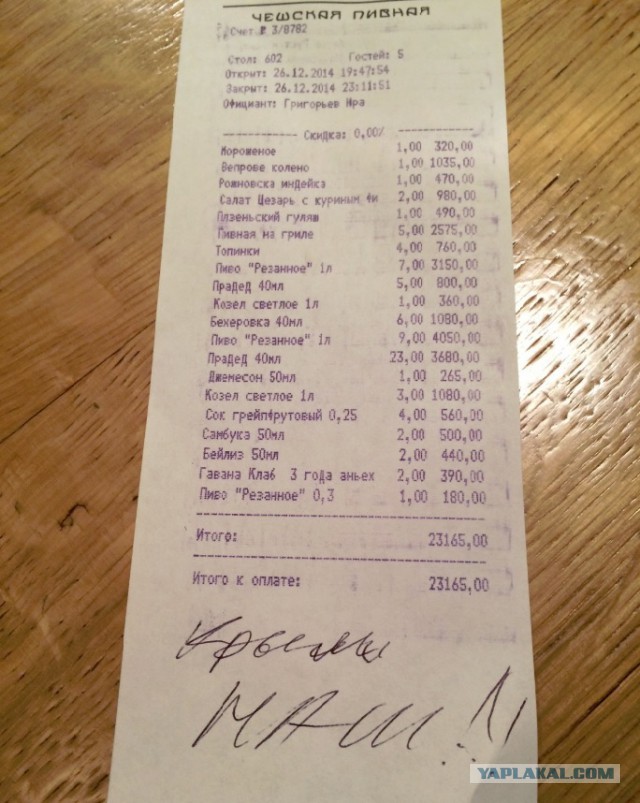 ЧЕШСКАЯ ПИВНАЯ
Счет № 3/8782
Стол: 602 Гостей: 5
Открыт: 26.12.2014 19:47:54
Закрыт: 26.12.2014 23:11:51
Официант: Григорьев Ира
Скидка: 0,00%
Мороженое 1,00 320,00
Вепрове колено 1,00 1035,00
Рожновска индейка 1,00 470,00
Салат Цезарь с куриным фи 2,00 980,00
Плзеньский гуляш 1,00 490,00
Пивная на гриле 5,00 2575,00
Топинки 4,00 760,00
Пиво "Резанное" 1л 7,00 3150,00
Прадед 40мл 5,00 800,00
Козел светлое 1л 1,00 360,00
Бехеровка 40мл 6,00 1080,00
Пиво "Резанное" 1л 9,00 4050,00
Прадед 40мл 23,00 3680,00
Джемесон 50мл 1,00 265,00
Козел светлое 1л 3,00 1080,00
Сок грейпфрутовый 0,25 4,00 560,00
Самбука 50мл 2,00 500,00
Бейлиз 50мл 2,00 440,00
Гавана Клаб 3 года аньех 2,00 390,00
Пиво "Резанное" 0,3 1,00 180,00
Итого: 23165,00
Итого к оплате: 23165,00
НАШ!!
YAPLAKAL.COM